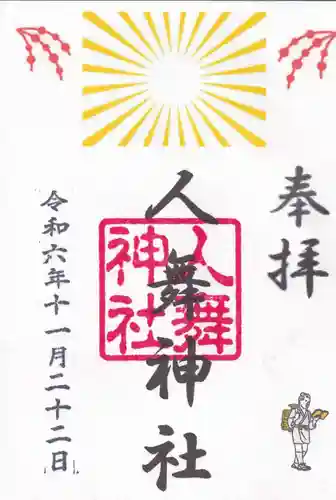 奉拝
人舞神社
人舞神社
令和六年十一月二十二日